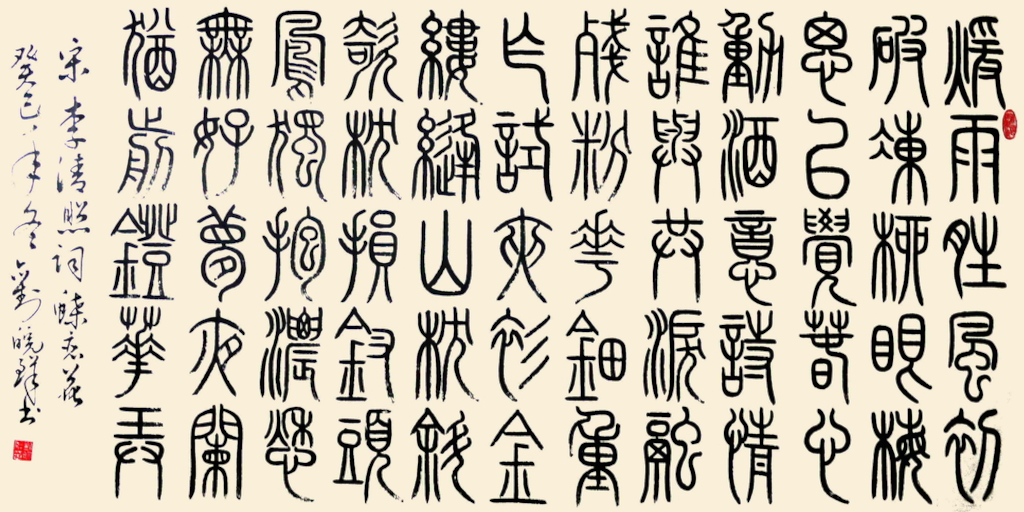 煖雨晴風初
破凍柳眼梅
思已覺春心
動酒意詩情
誰與共淚融
殘粉花鈿重
乍試夾衫金
縷縫山枕斜
欹枕損釵頭
鳳獨抱濃愁
無好夢夜闌
猶剪鐙華弄
宋李清照詞蝶恋花
癸巳年冬劉曉书